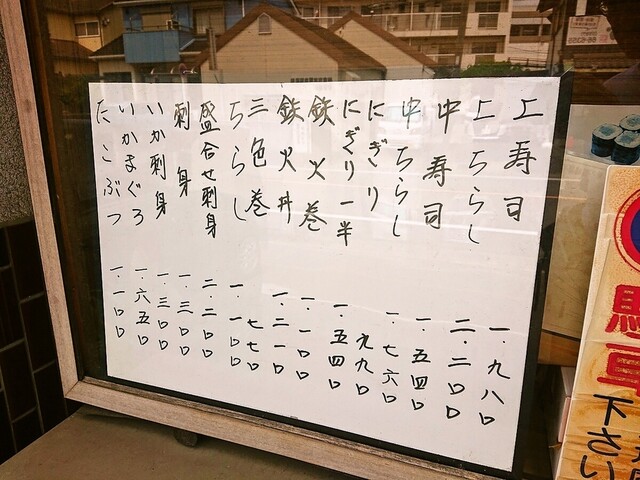 上寿司 一.九八〇
上ちらし 二.二〇〇
中寿司 一.五四〇
中ちらし 一.七六〇
にぎり 九九〇
にぎり一半 一.五四〇
鉄火巻 一.一〇〇
鉄火丼 一.二一〇
三色巻 七七〇
ちらし 一.一〇〇
盛合せ刺身 二.二〇〇
刺身 一.三〇〇
いか刺身 一.三〇〇
いかまぐろ 一.六五〇
たこぶつ 一.一〇〇
駐車
下さい